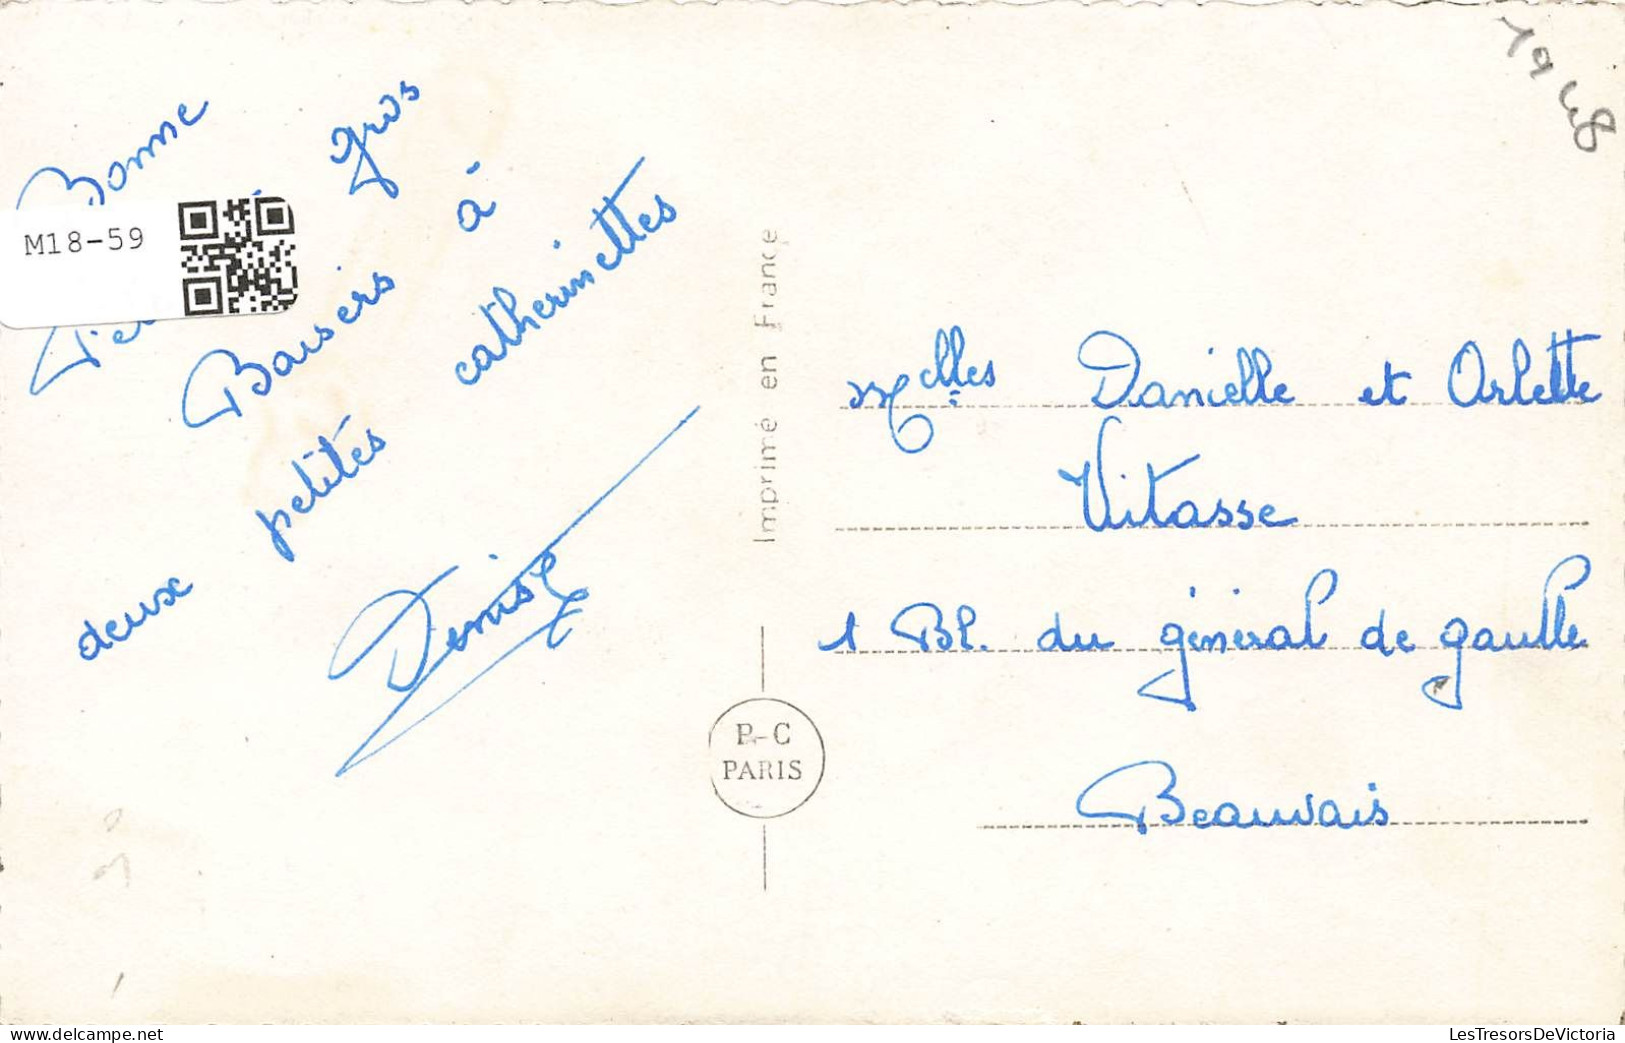 Bonne
gros
Baisers à
deux petites catherinettes
Denise
M18-59
Imprimé en France
P-C
PARIS
1948
Melles Danielle et Arlette
Vitasse
1 Bl. du général de gaulle
Beauvais
delcampe.net
LesTresorsDeVictoria